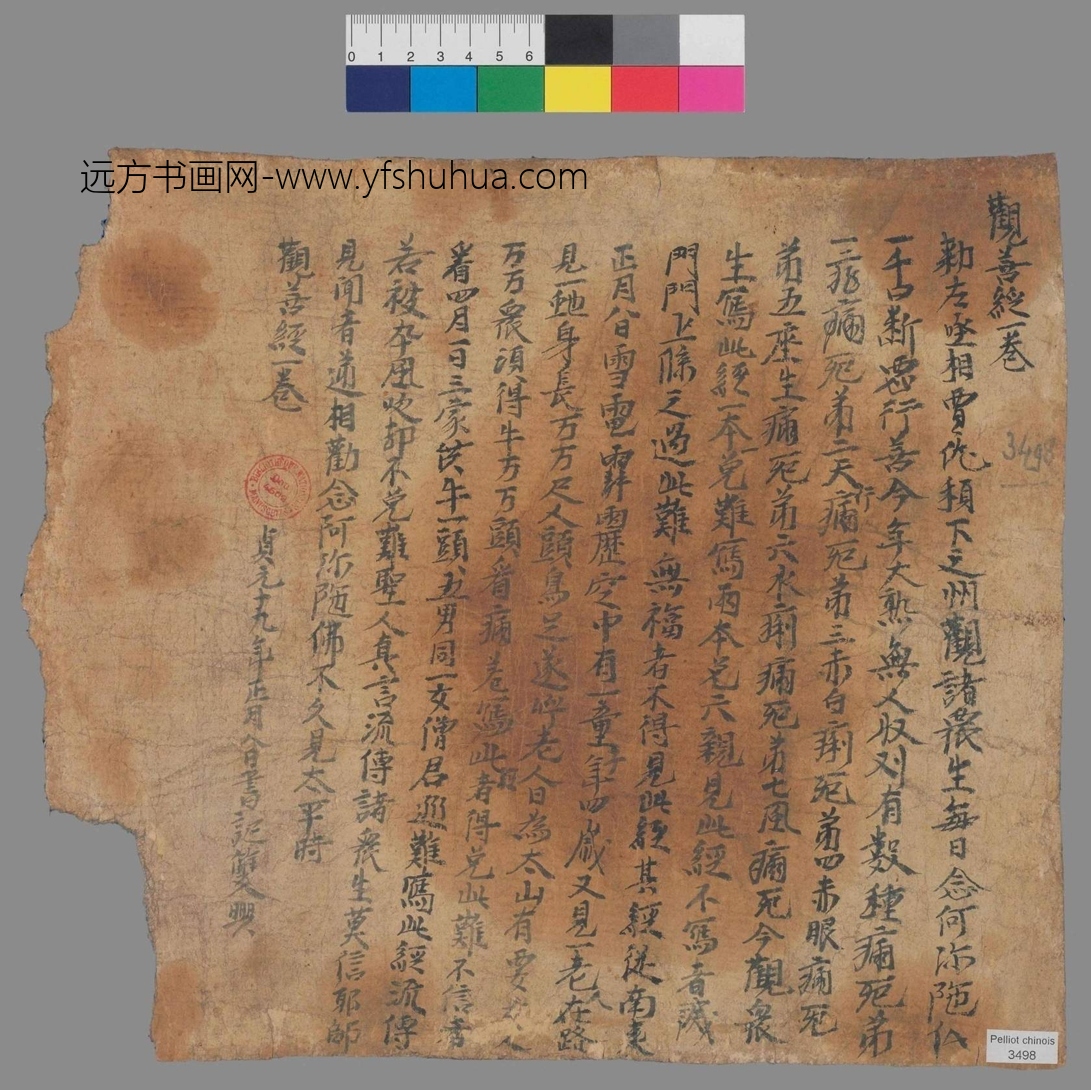 0 1 2 3 4 5 6
远方书画网-www.yfshuhua.com
觀善經一卷
勅左丞相賈侂頒下之州觀諸衆生每日念何弥陁仏
一千口断惡行善今年大熟無人収刈有數種病死苐
三瘧病死苐二天行病死苐三赤白痢死苐四赤眼病死
苐五産生病死苐六水痢病死苐七風病死今觀衆
生寫此經一本免一難寫兩本免六親見此經不寫者滅
門門上䧟之過此難無福者不得見此經其經從南来
正月八日雪電霹靂空中有一童子年四歲又見一老人在路
見一虵身長万万尺人頭鳥足遂呼老人曰為太山
万万衆須得牛万万頭着病者寫此者得免此難不信者
看四月一日三家使牛一頭五男同一女僧尼巡難寫此經流傳
若被卒風吹却不免難聖人真言流傳諸衆生莫信耶師
見聞者逓相勸念阿弥陁佛不久見太平時
觀善經一卷
貞元十九年正月八日書記
3498
Pelliot chinois
3498